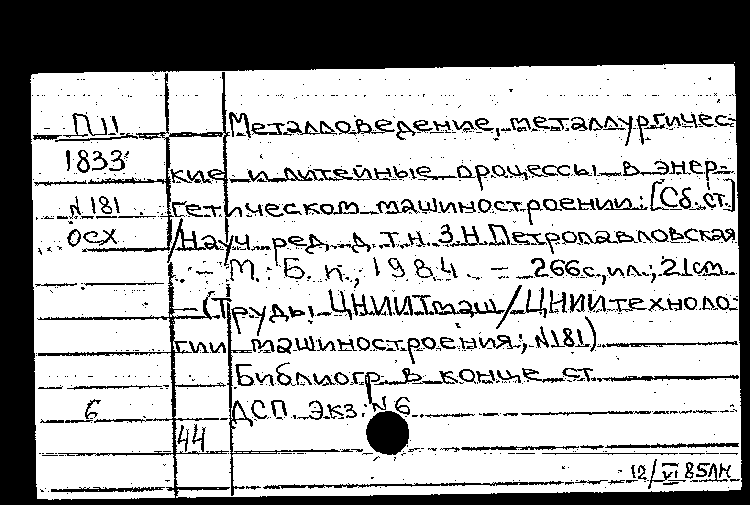 П 11 Металловедение, металлургичес-
1833 кие и литейные процессы в энер-
N 181 гетическом машиностроении: [Сб. ст.]
ОСХ /Науч. ред. д.т.н. З.Н. Петропавловская
. – М.: Б. и., 1984. – 266с., ил.; 21см.
– (Труды ЦНИИТмаш / ЦНИИ техноло-
гии машиностроения; N181)
Библиогр. в конце ст.
6 ДСП. Экз. N 6
44
12/VI 85